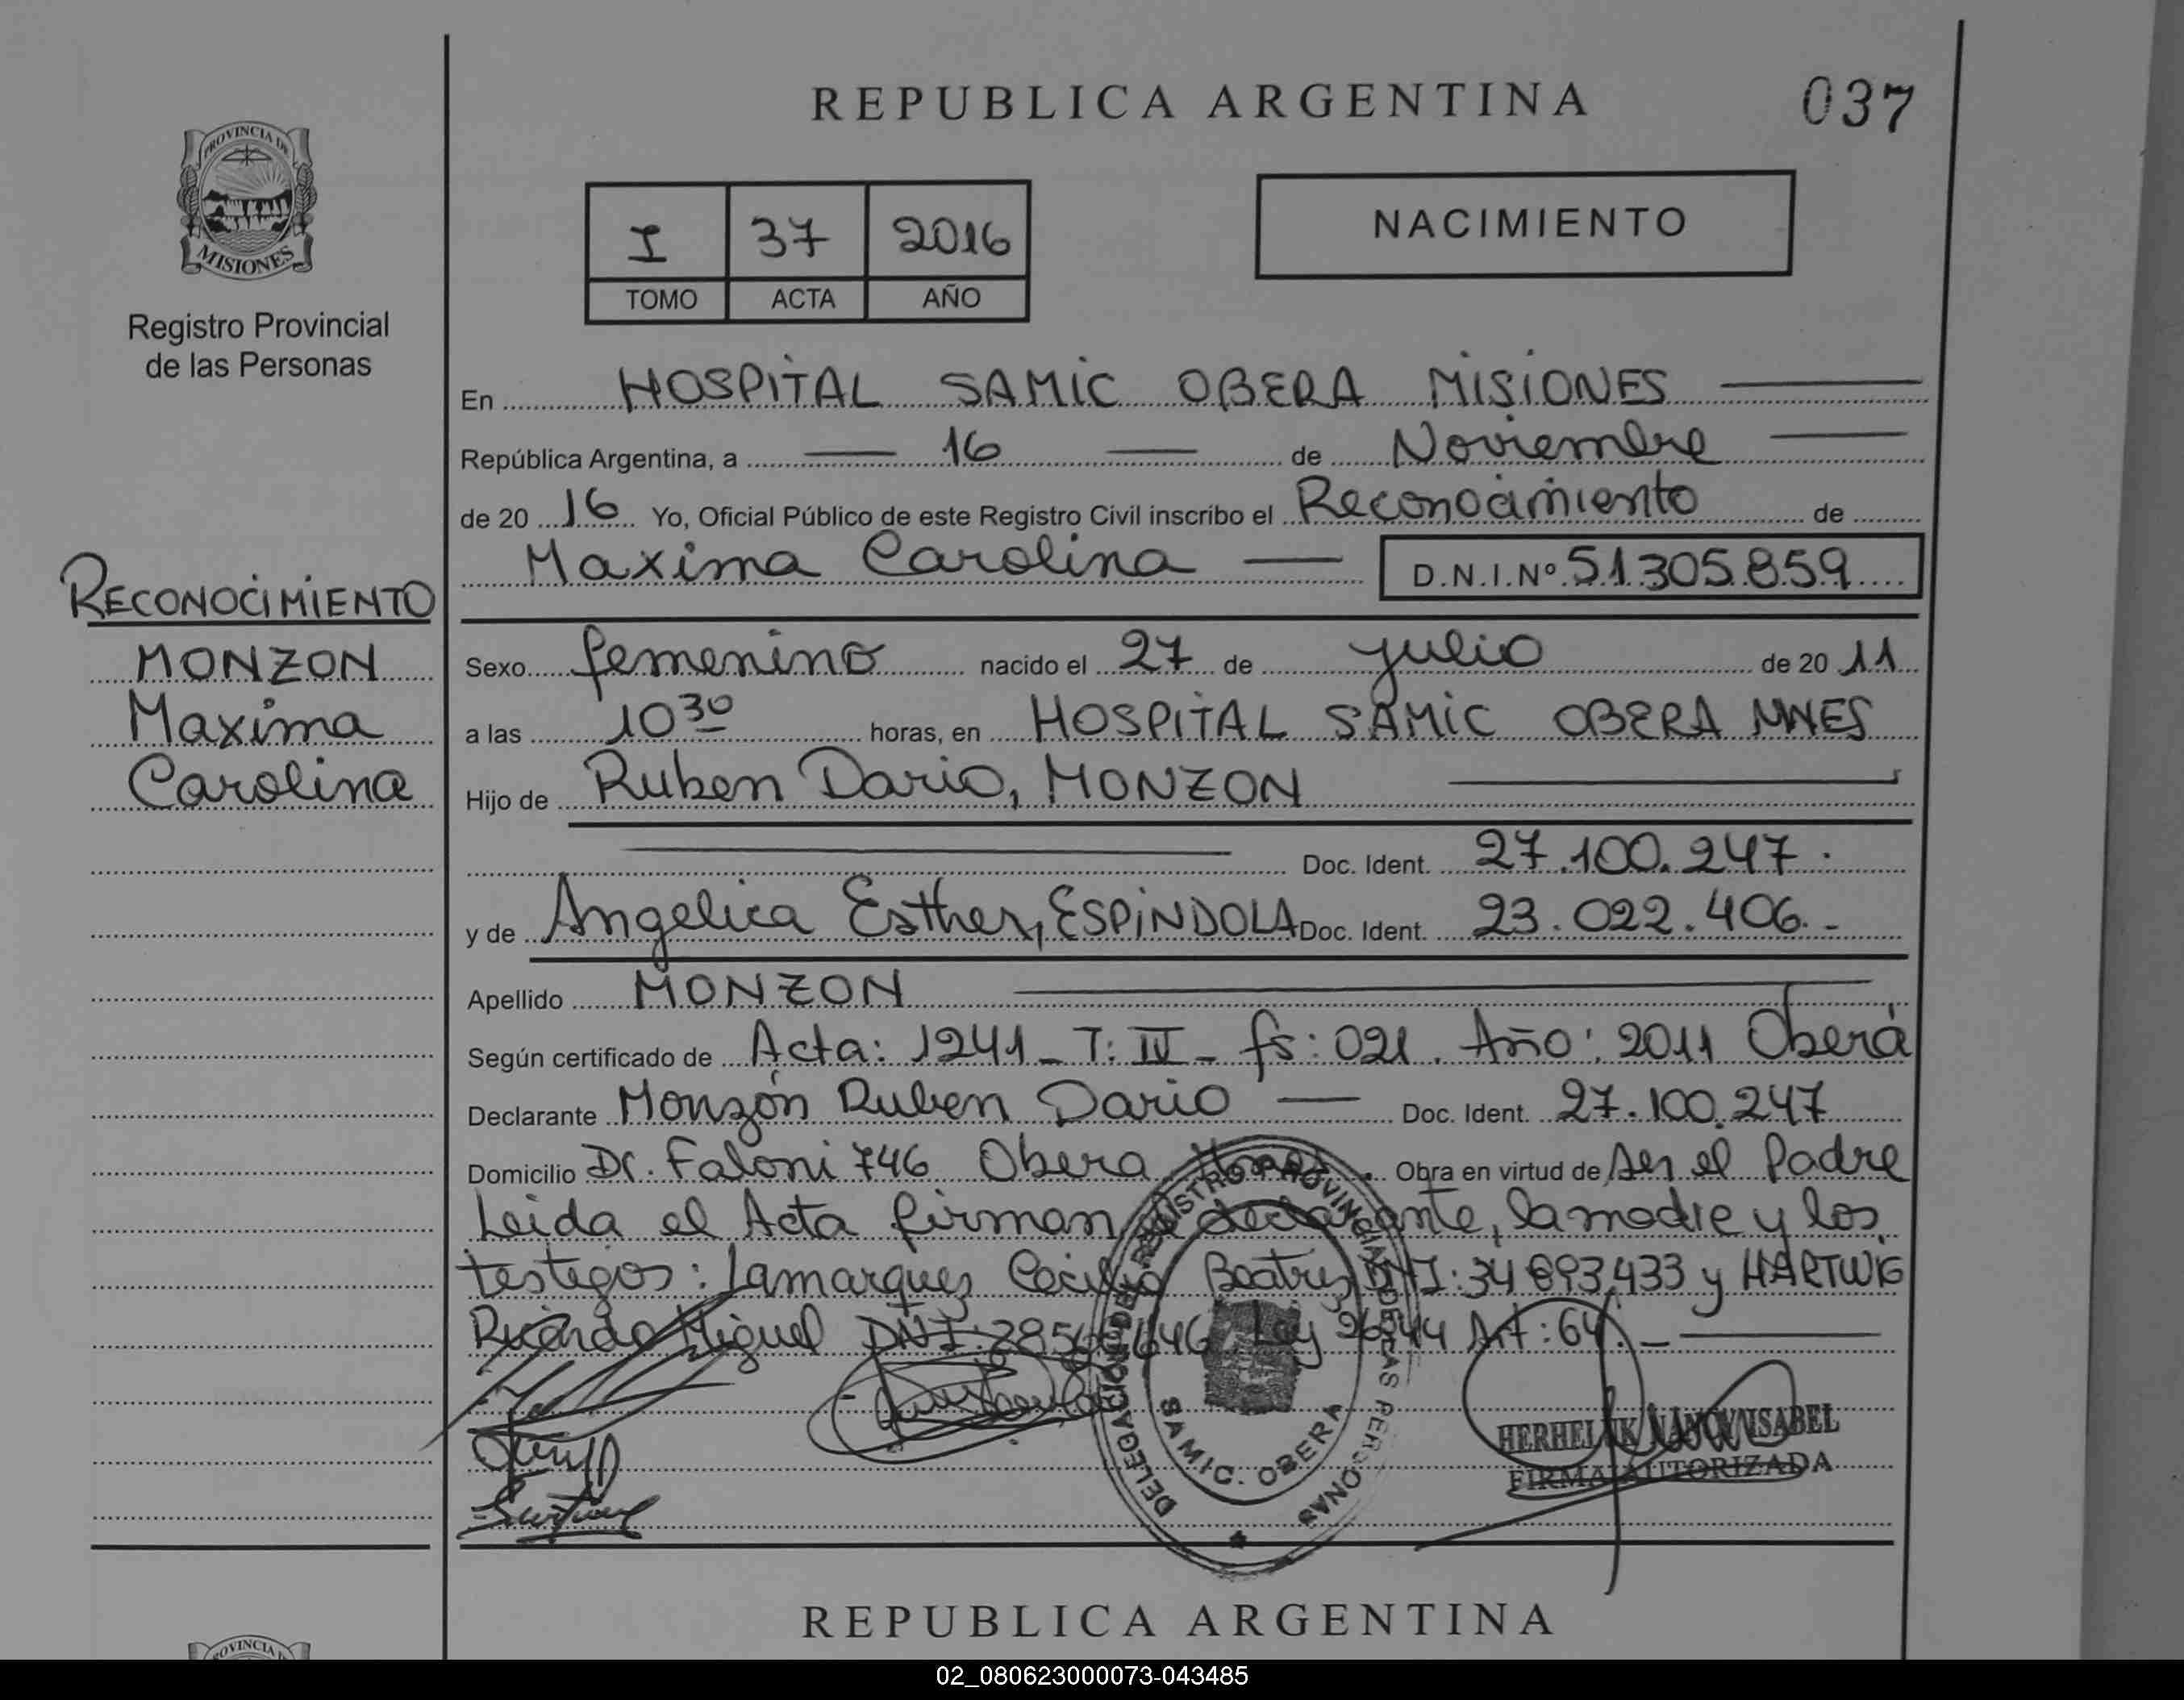 REPUBLICA ARGENTINA
037
PROVINCIA DE
MISIONES
Registro Provincial
de las Personas
I 37 2016
TOMO ACTA AÑO
NACIMIENTO
En HOSPITAL SAMIC OBERA MISIONES
República Argentina, a 16 de Noviembre
de 20 16 Yo, Oficial Público de este Registro Civil inscribo el Reconocimiento de
Maxima Carolina D.N.I.Nº 51.305.859
RECONOCIMIENTO
MONZON
Maxima
Carolina
Sexo femenino nacido el 27 de julio de 20 11
a las 10 30 horas, en HOSPITAL SAMIC OBERA MNES
Hijo de Ruben Dario, MONZON
Doc. Ident. 27.100.247.
y de Angelica Esther, ESPINDOLA Doc. Ident. 23.022.406.-
Apellido MONZON
Según certificado de Acta: 1241_ T: IV_ fs: 021. Año: 2011 Oberá
Declarante Monzón Ruben Dario Doc. Ident. 27.100.247
Domicilio Dr. Faloni 746 Obera Mnes. Obra en virtud de ser el Padre
Leida el Acta firman el declarante, la madre y los
testigos: Lamarques Cecilia Beatriz DNI: 34893433 y HARTWIG
Ricardo Miguel DNI: Ley Art: 64._
DELEGACION DEL REGISTRO PROVINCIAL DE LAS PERSONAS
SAMIC. OBERA
ISABEL
FIRMA AUTORIZADA
REPUBLICA ARGENTINA
PROVINCIA
02_080623000073-043485